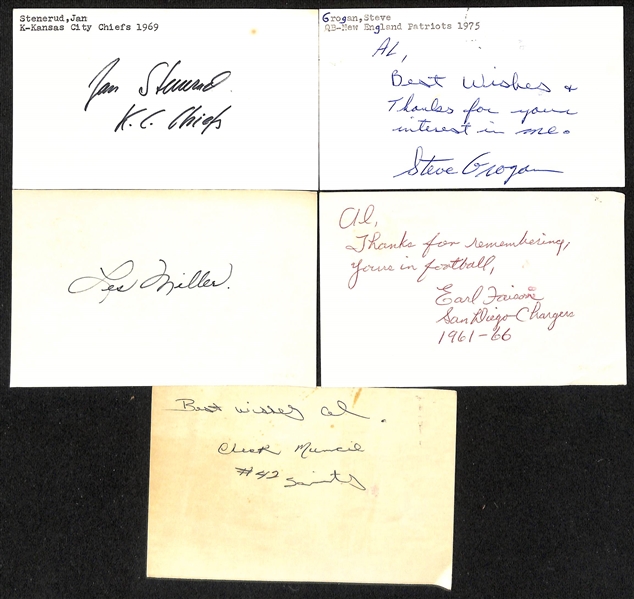 Stenerud,Jan
K-Kansas City Chiefs 1969
Jan Stenerud
K.C. Chiefs
Grogan,Steve
QB-New England Patriots 1975
AL,
Best Wishes &
Thanks for your
interest in me.
Steve Grogan
Les Miller.
Al,
Thanks for remembering,
yours in football,
Earl Faison
San Diego Chargers
1961-66
Best wishes Al
Chuck Muncie
#42 Saints